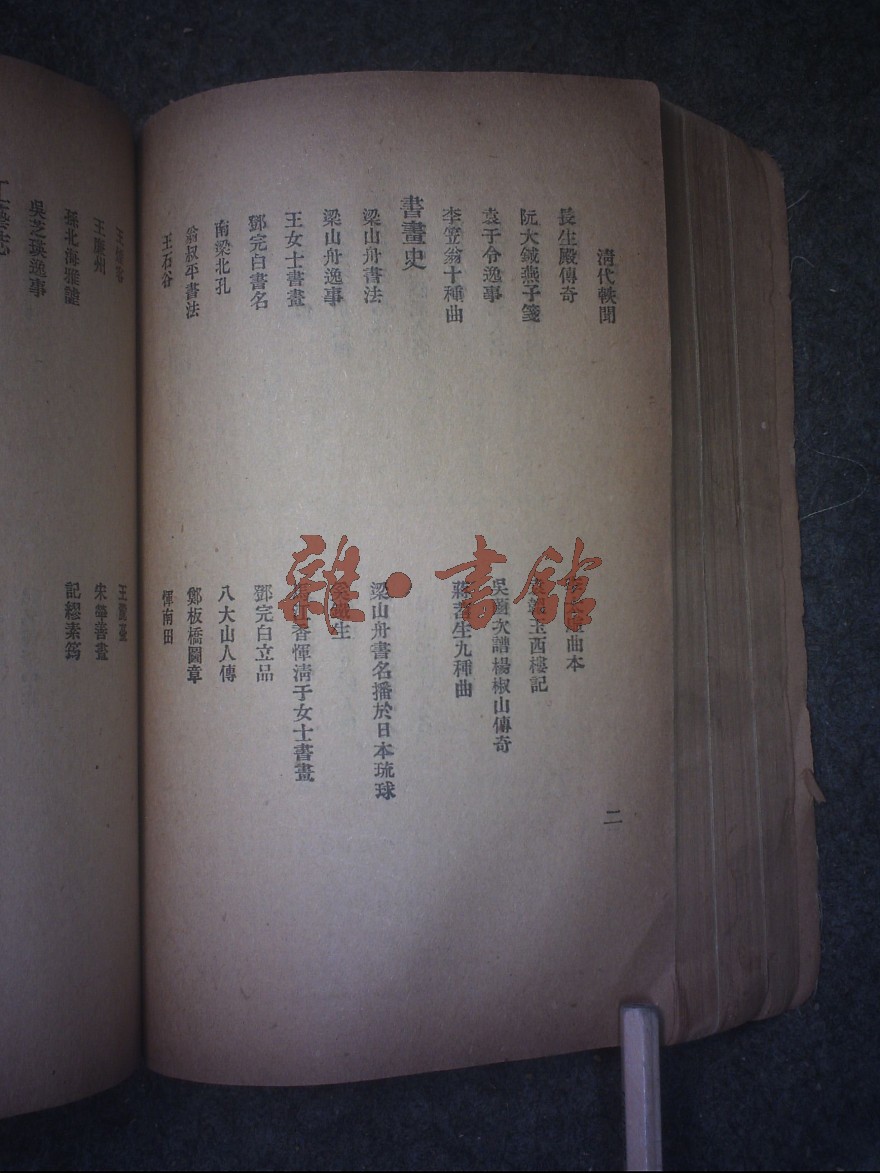 清代軼聞
二
長生殿傳奇
曲本
阮大鋮燕子箋
玉西樓記
袁于令逸事
吳薗次譜楊椒山傳奇
李笠翁十種曲
蔣苕生九種曲
書畫史
梁山舟書法
梁山舟書名播於日本琉球
梁山舟逸事
生
王女士書畫
香惲清于女士書畫
鄧完白書名
鄧完白立品
南梁北孔
八大山人傳
翁叔平書法
鄭板橋圖章
王石谷
惲南田
王
王廉州
朱善畫
孫北海雅謔
記繆素筠
吳芝瑛逸事
雜·書館